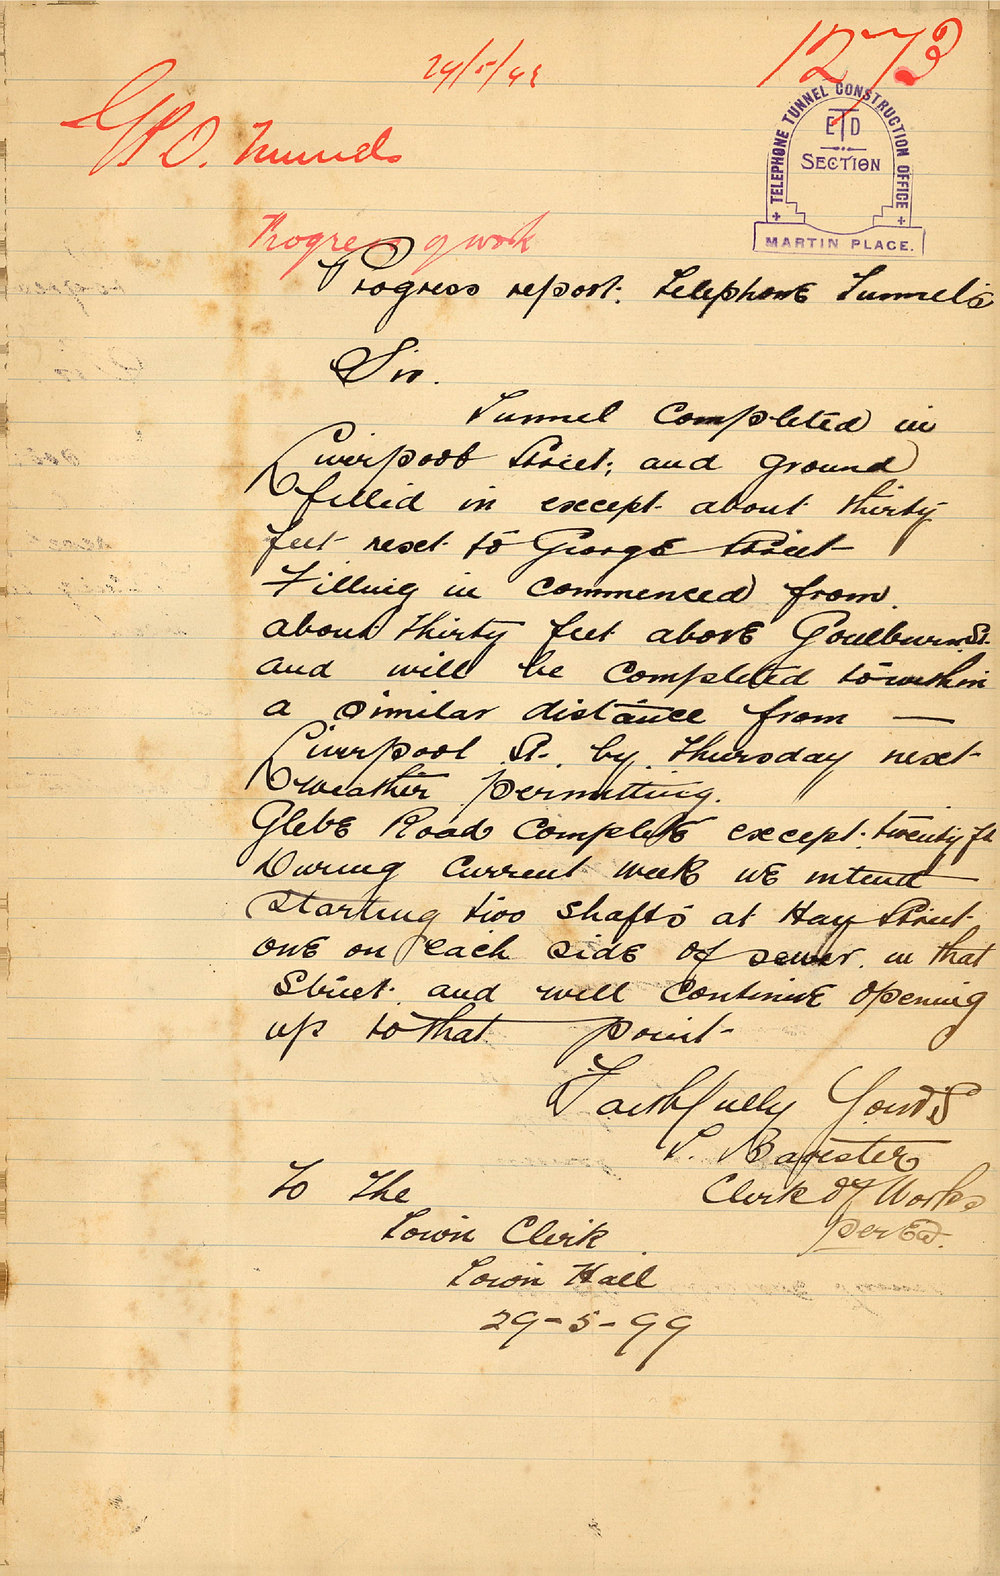 29/5/99
1273
G.P.O. Tunnels
TELEPHONE TUNNEL CONSTRUCTION OFFICE
ETD
SECTION
MARTIN PLACE.
Progress of work
Progress report. Telephone Tunnels
Sir.
Tunnel completed in
Liverpool Street; and ground
filled in except about thirty
feet next to George Street
Filling in commenced from
about thirty feet above Goulburn St.
and will be completed to within
a similar distance from —
Liverpool St. by Thursday next
weather permitting.
Glebe Road Complete except twenty ft
During current week we intend
starting two shafts at Hay Street
one on each side of sewer in that
Street. and will continue opening
up to that point
Faithfully Yours
Clerk of Works
per
To The
Town Clerk
Town Hall
29-5-99